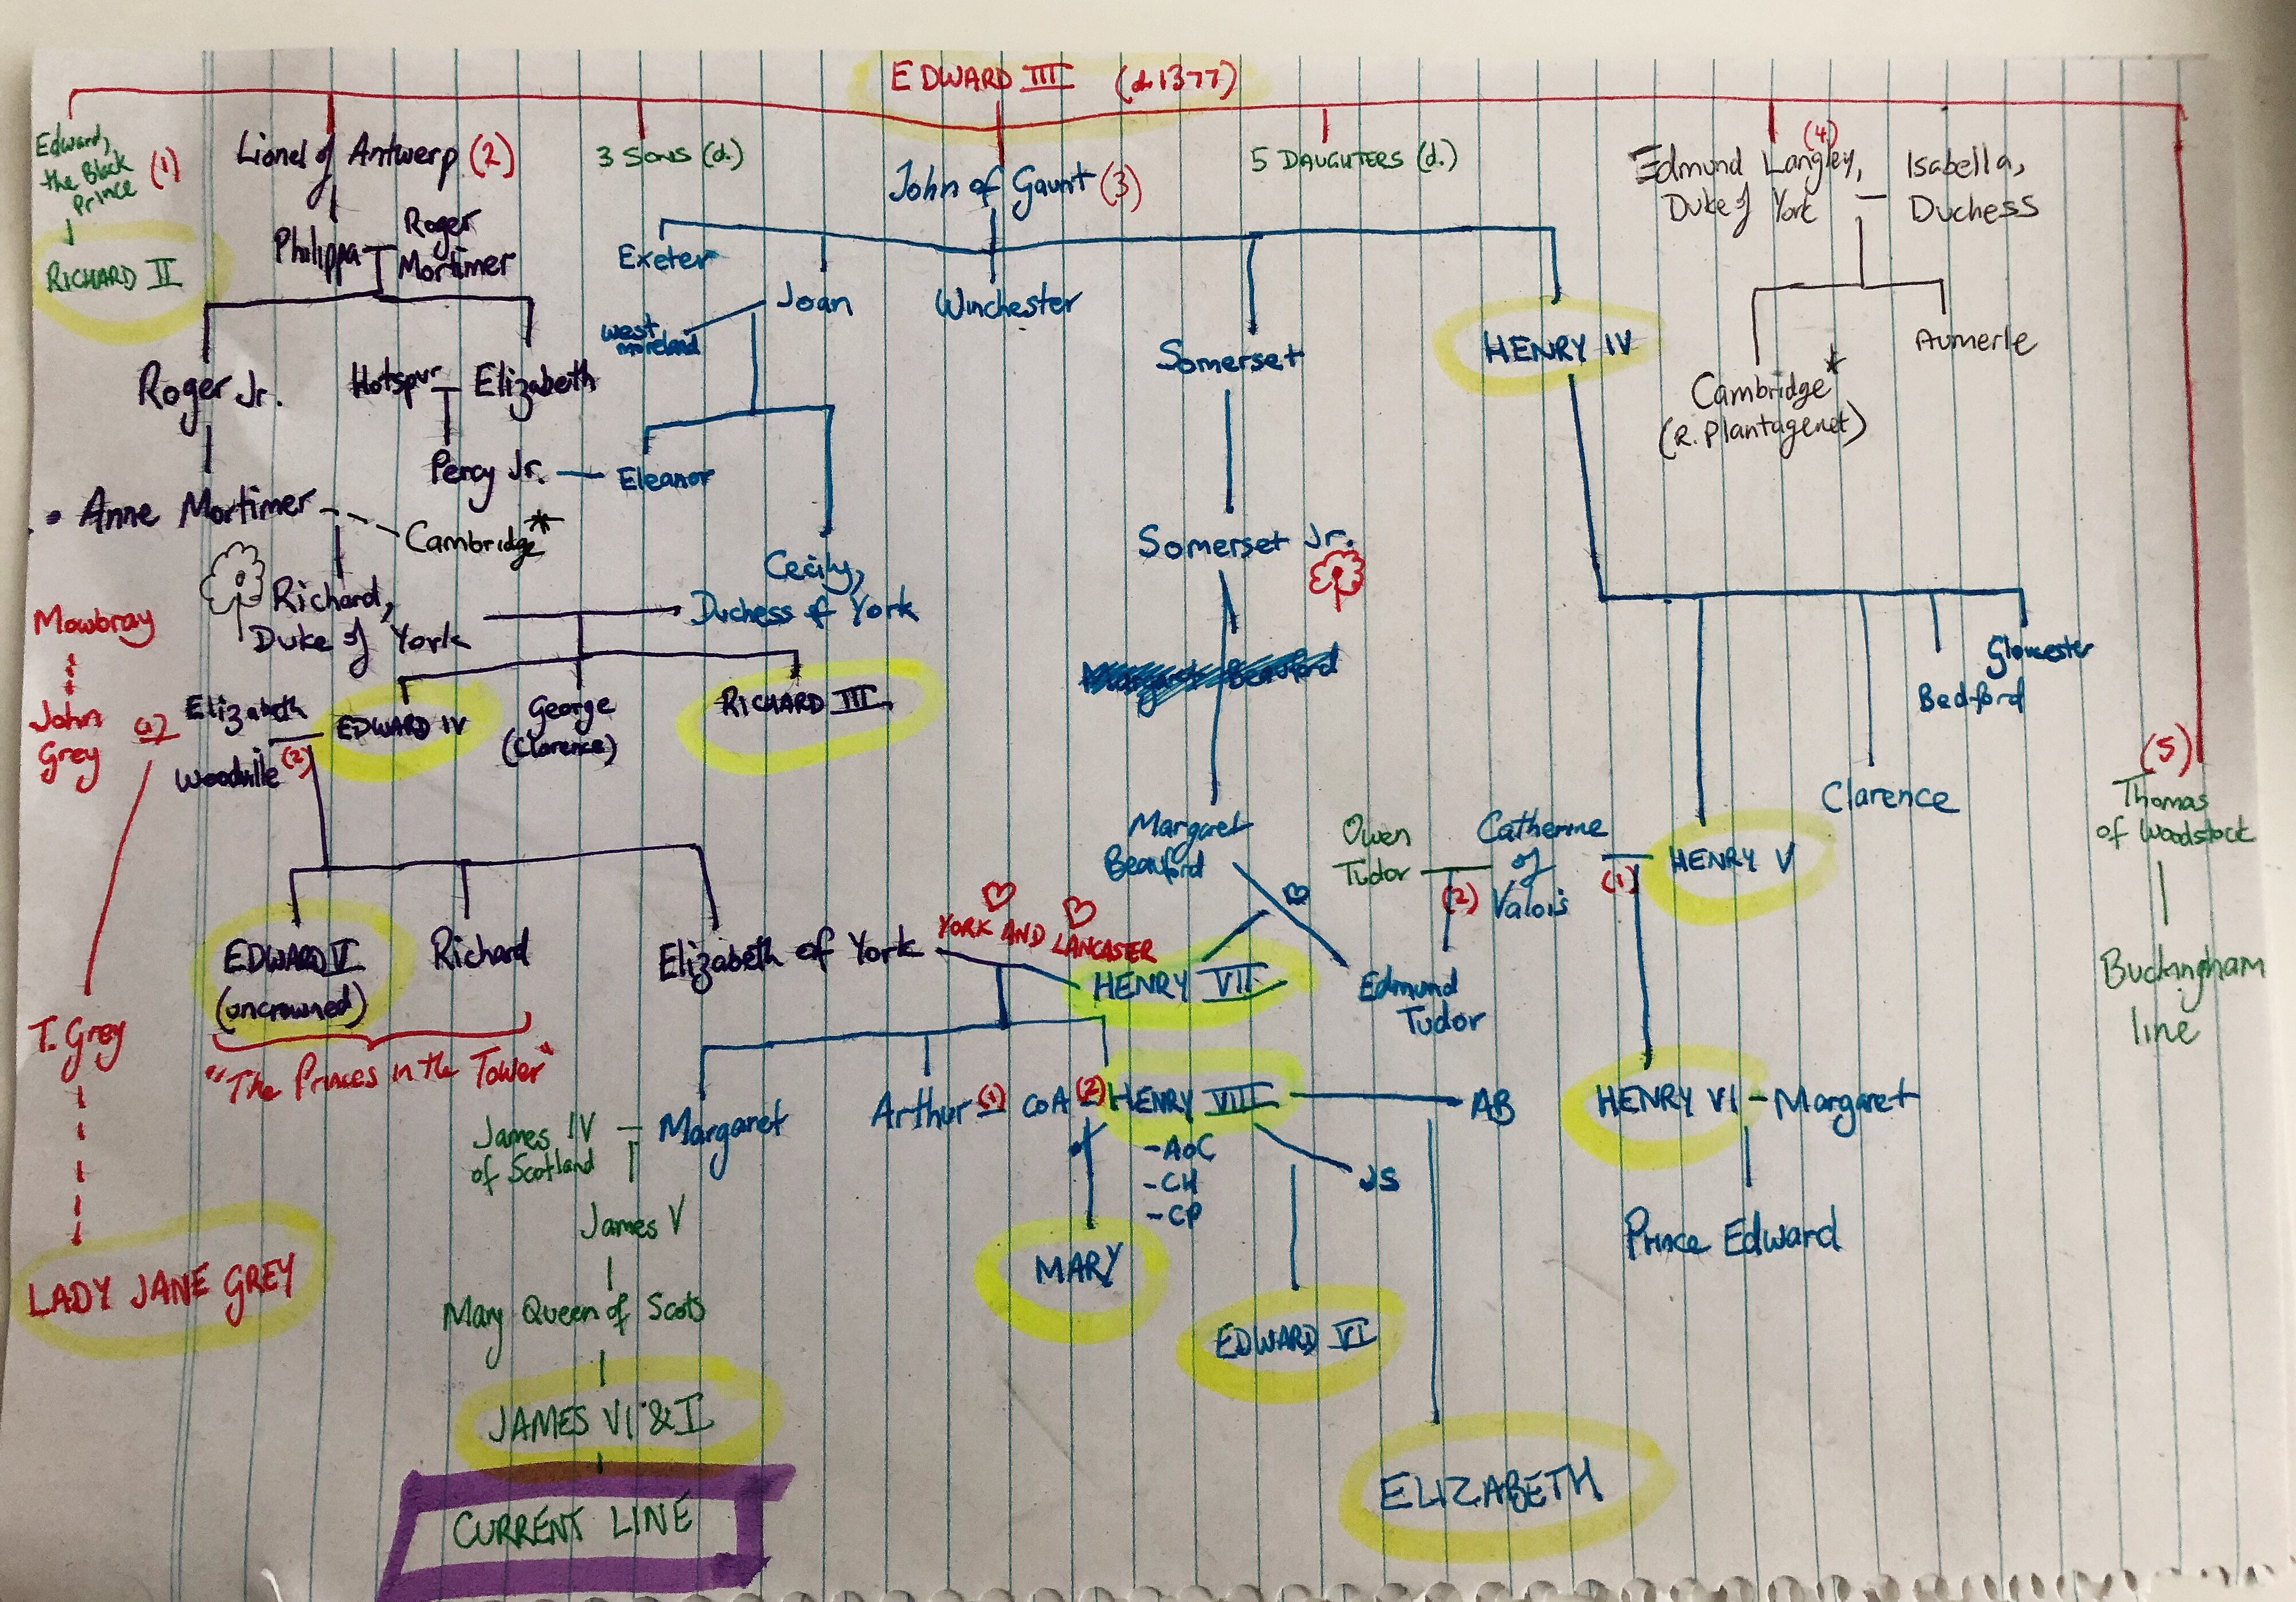 EDWARD III (d. 1377)
Edward,
the Black
Prince
(1)
RICHARD II
Lionel of Antwerp (2)
Philippa
Roger
Mortimer
3 SONS (d.)
John of Gaunt (3)
5 DAUGHTERS (d.)
(4)
Edmund Langley,
Duke of York
Isabella,
Duchess
Exeter
Joan
West
moreland
Winchester
Somerset
HENRY IV
Cambridge*
(R. Plantagenet)
Aumerle
Roger Jr.
Hotspur
Elizabeth
Percy Jr.
Eleanor
Anne Mortimer
Cambridge*
Cecily,
Duchess of York
Richard,
Duke of York
Somerset Jr.
Gloucester
Bedford
Clarence
Mowbray
John
Grey
(1)
Elizabeth
Woodville
(2)
EDWARD IV
George
(Clarence)
RICHARD III
Margaret Beauford
(5)
Thomas
of Woodstock
Buckingham
line
Margaret
Beauford
Owen
Tudor
(2)
Catherine
of
Valois
(1)
HENRY V
EDWARD V
(uncrowned)
Richard
Elizabeth of York
YORK AND LANCASTER
HENRY VII
Edmund
Tudor
T. Grey
"The Princes in the Tower"
James IV
of Scotland
Margaret
Arthur (1) CoA (2) HENRY VIII
AB
-AoC
-CH
-CP
JS
HENRY VI - Margaret
Prince Edward
James V
Mary Queen of Scots
MARY
EDWARD VI
ELIZABETH
LADY JANE GREY
JAMES VI & I
CURRENT LINE